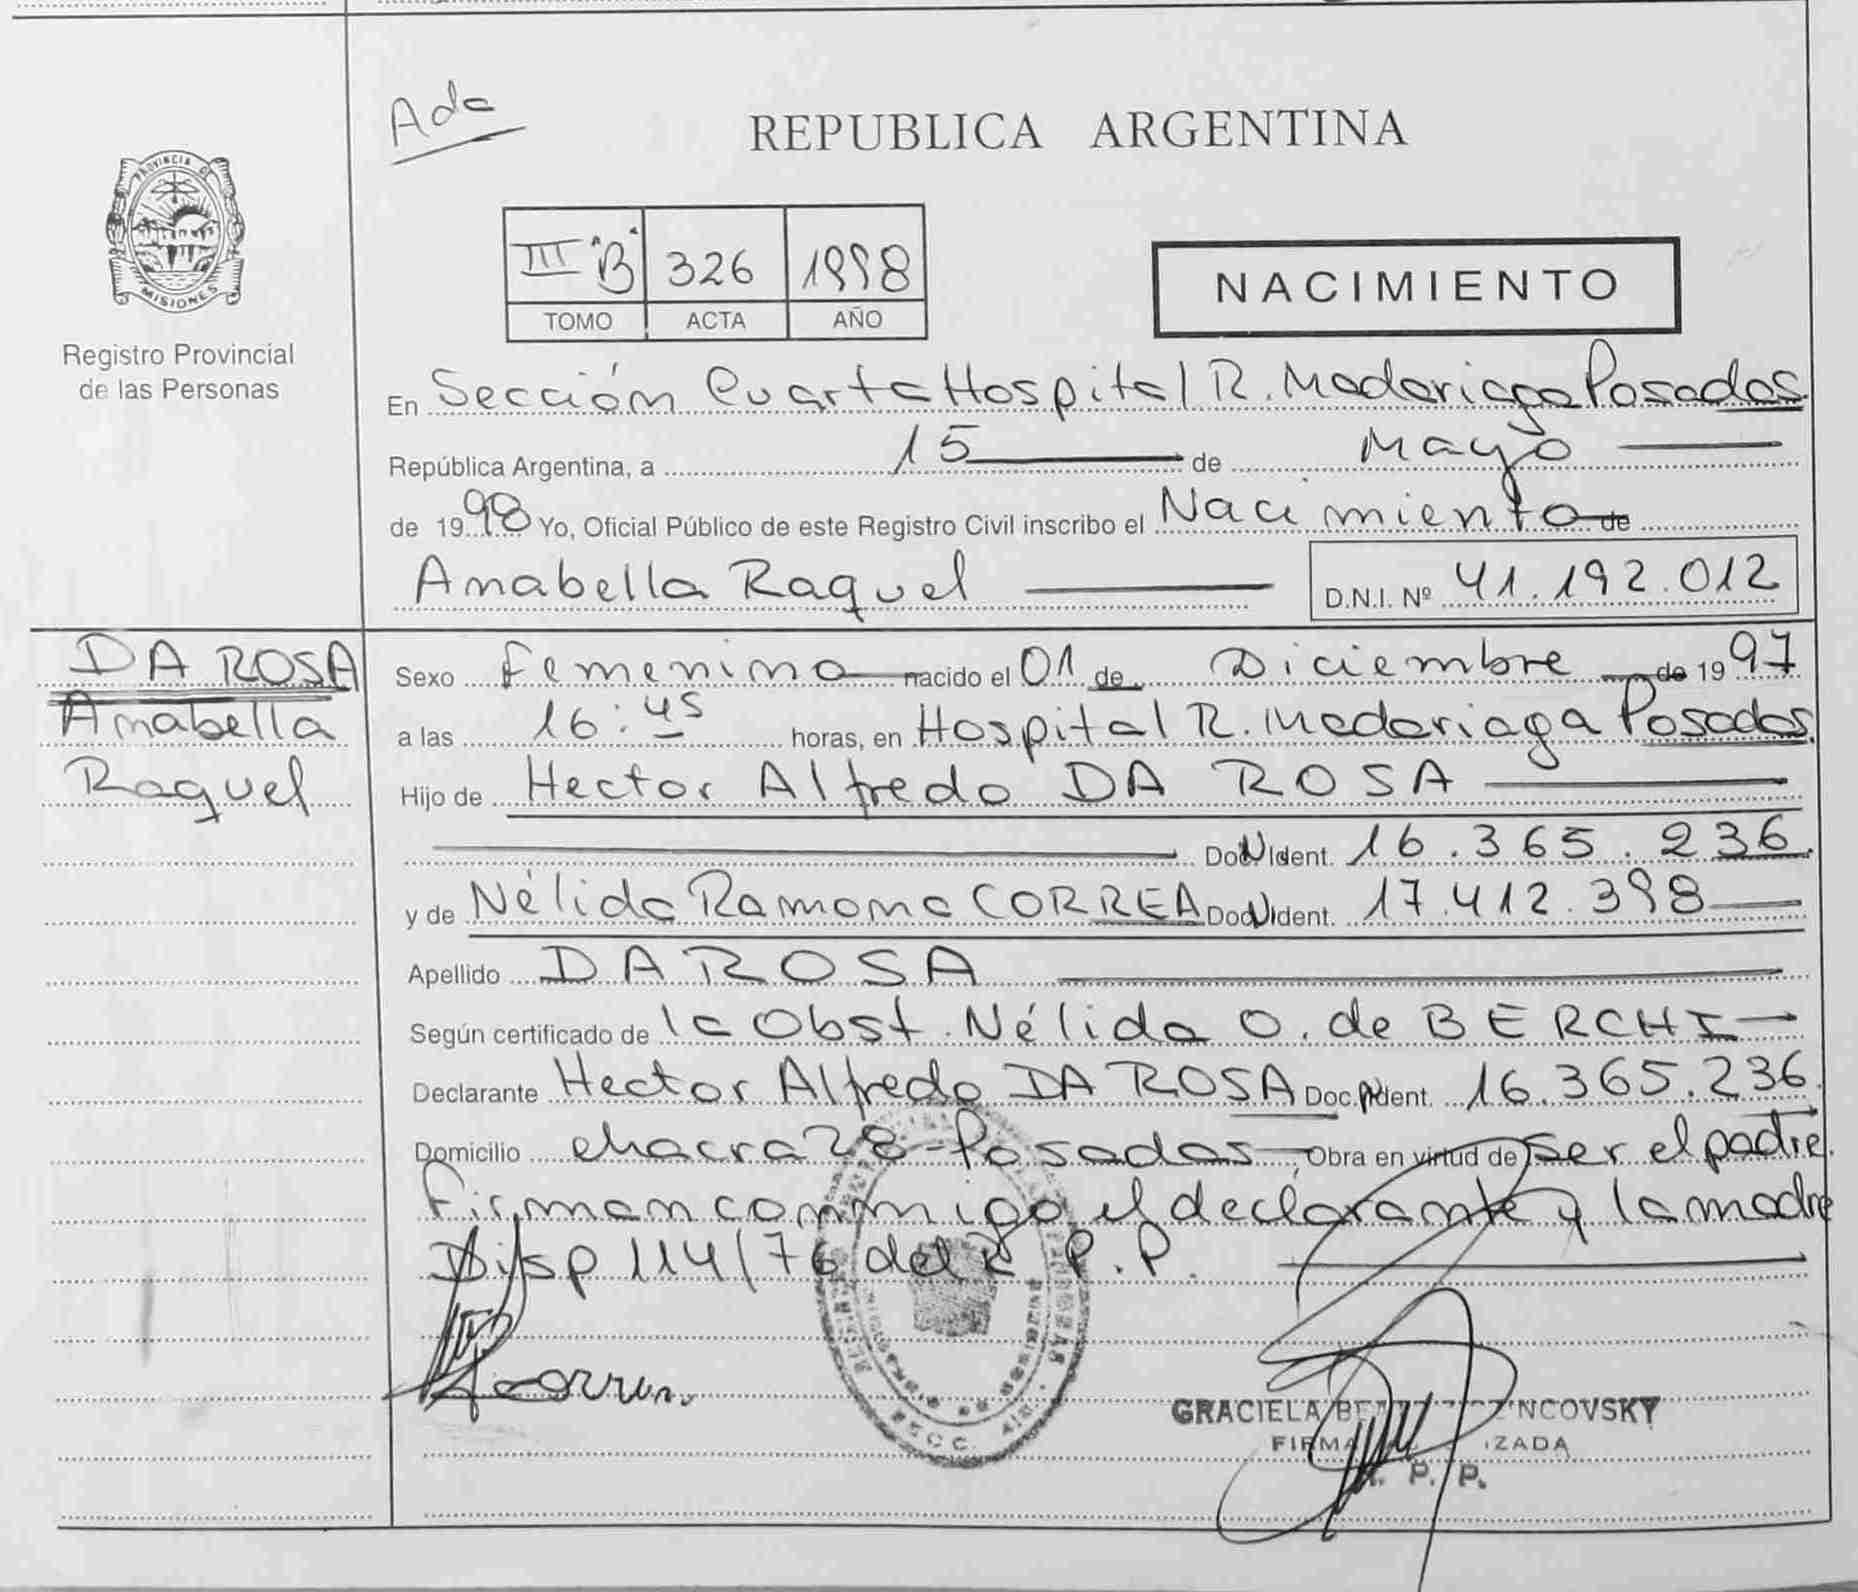 Ada
REPUBLICA ARGENTINA
PROVINCIA DE
MISIONES
Registro Provincial
de las Personas
III "B" 326 1998
TOMO ACTA AÑO
NACIMIENTO
En Sección Cuarta Hospital R. Madariaga Posadas
República Argentina, a 15 de Mayo
de 1998 Yo, Oficial Público de este Registro Civil inscribo el Nacimiento de
Anabella Raquel D.N.I. Nº 41.192.012
DA ROSA
Anabella
Raquel
Sexo Femenino nacido el 01 de Diciembre de 1997
a las 16:45 horas, en Hospital R. Madariaga Posadas.
Hijo de Hector Alfredo DA ROSA
Doc. Ident. 16.365.236.
y de Nélida Ramona CORREA Doc. Ident. 17.412.398
Apellido DA ROSA
Según certificado de la Obst. Nélida O. de BERCHI
Declarante Hector Alfredo DA ROSA Doc. Ident. 16.365.236.
Domicilio chacra 28-Posadas, Obra en virtud de ser el padre.
Firman conmigo el declarante y la madre
Disp 114/76 del R.P.P.
GRACIELA
FIRMA
P. P.